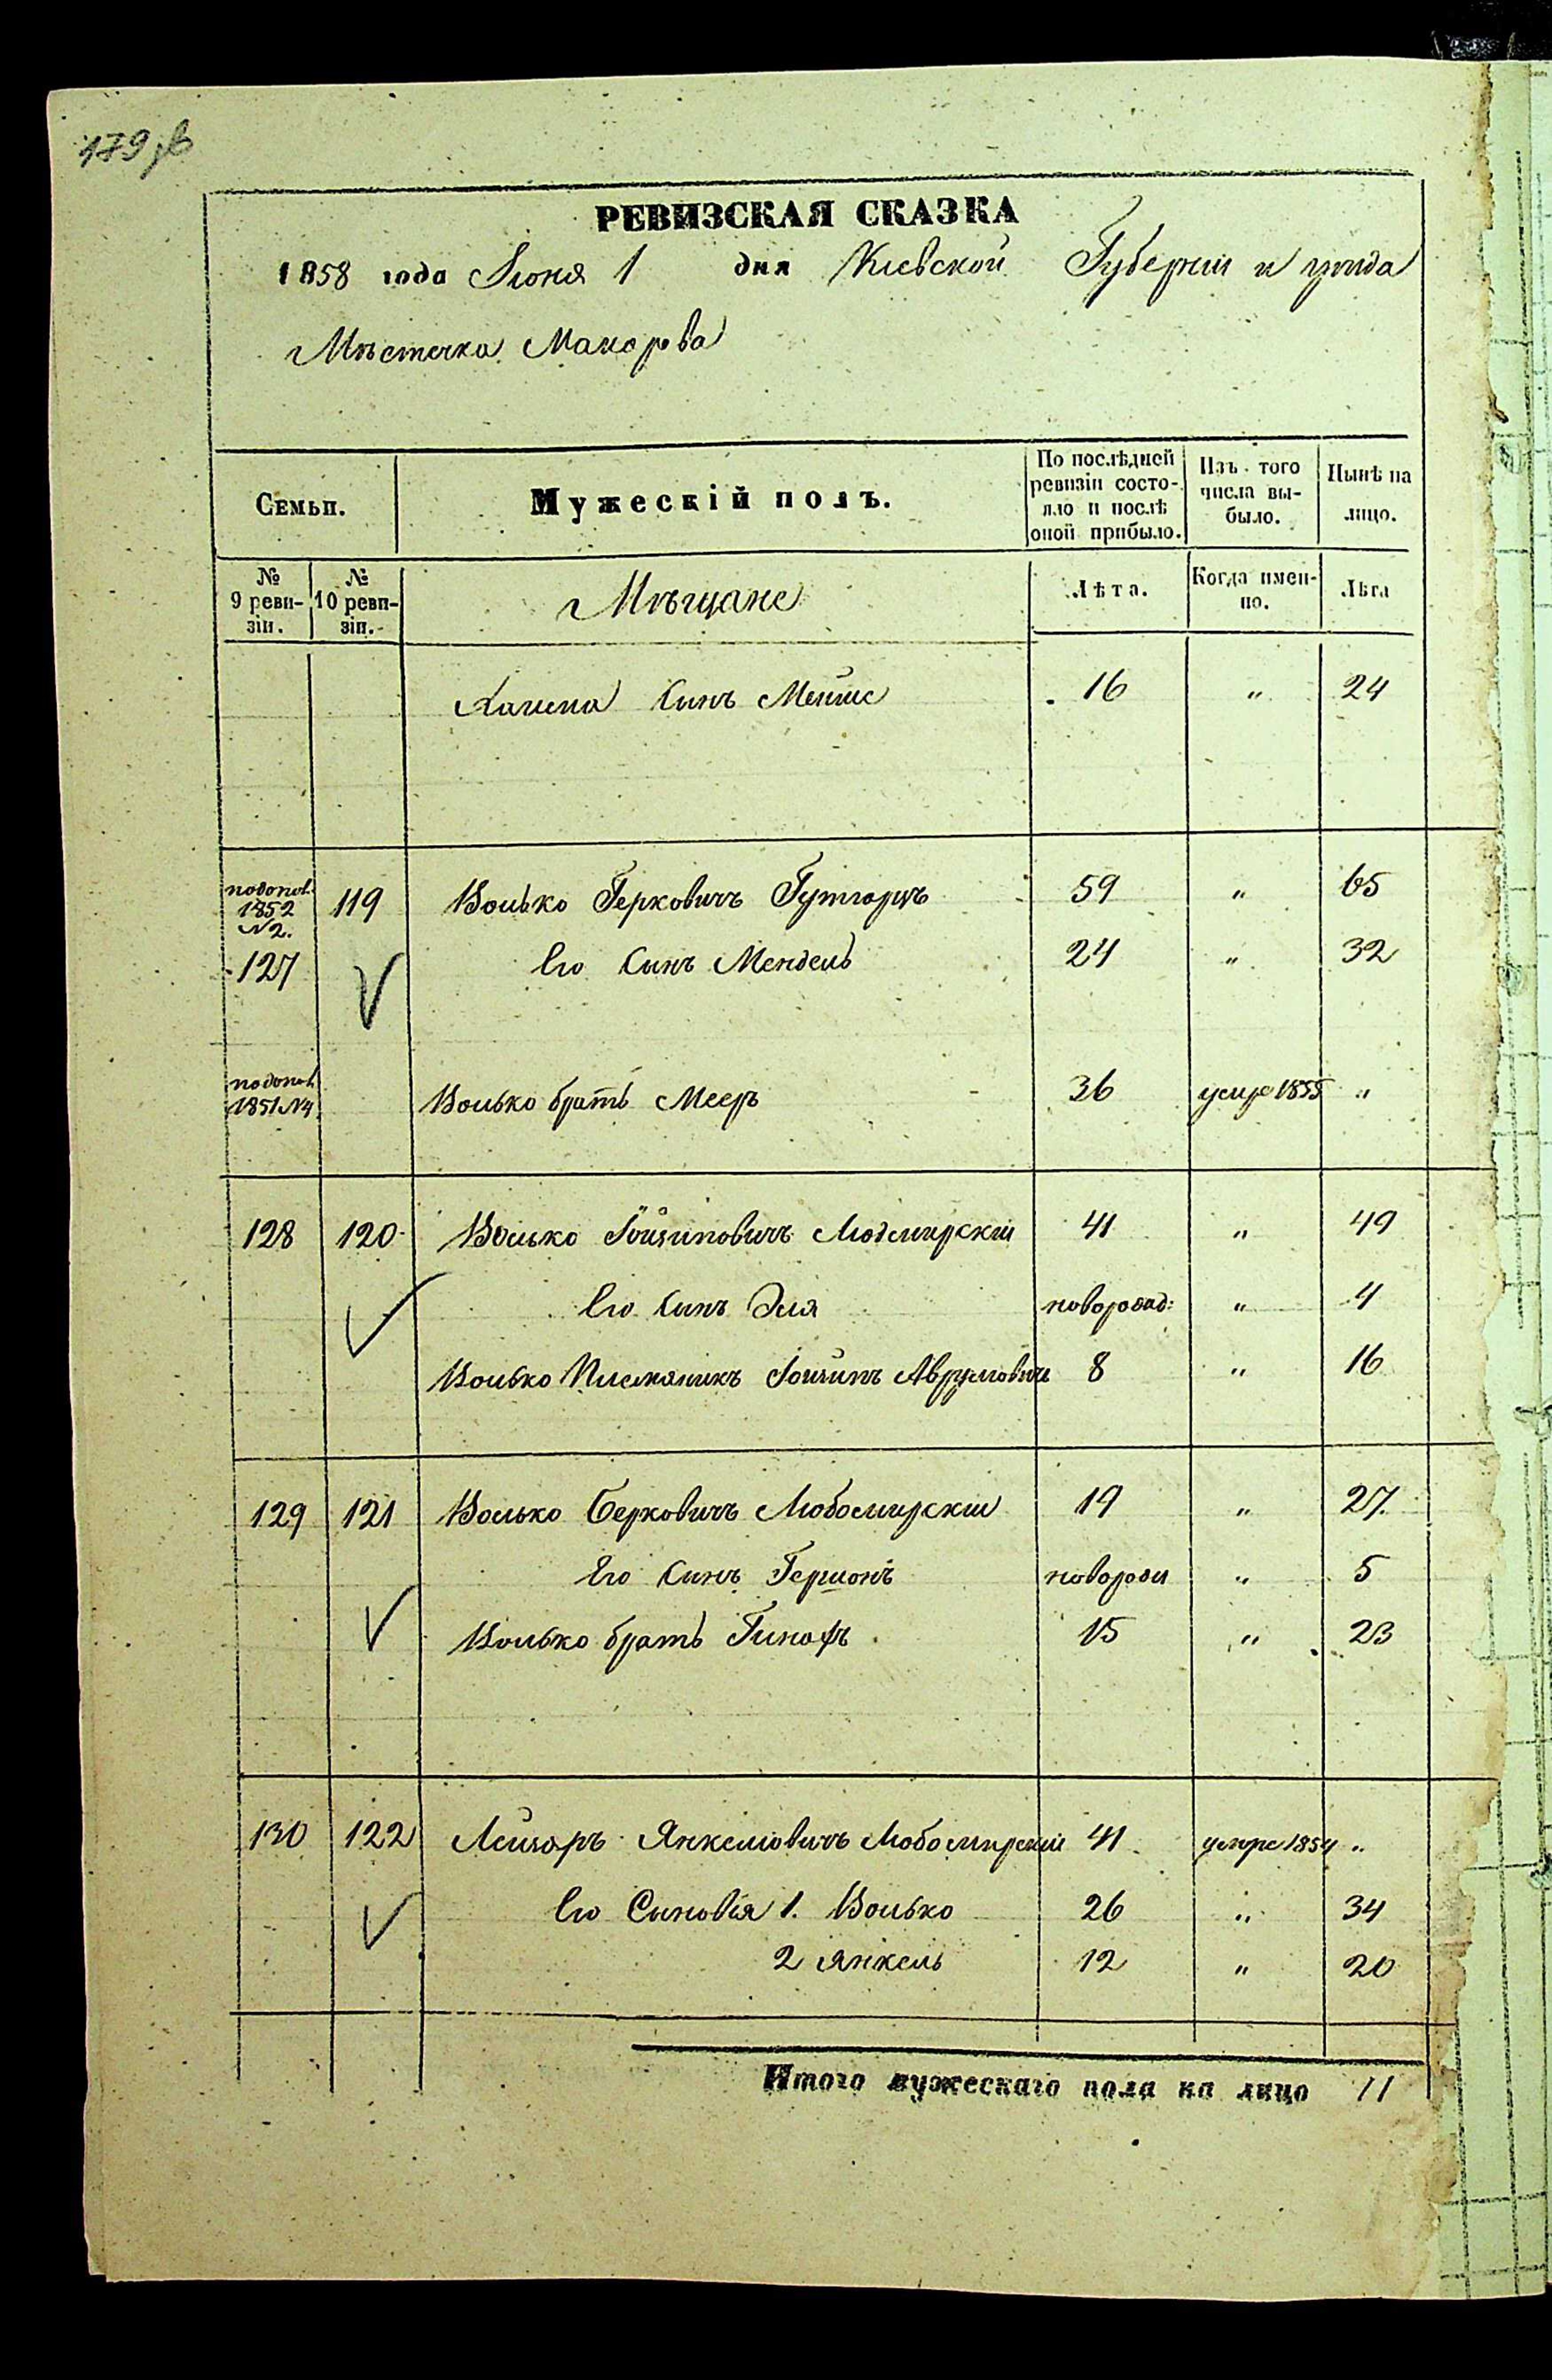 179 зв
РЕВИЗСКАЯ СКАЗКА
1858 года Июня 1 дня Кіевской Губерніи и уѣзда
Мѣстечка Макарова
Семьи.
Мужескій полъ.
По послѣдней ревизіи состояло и послѣ оной прибыло.
Изъ того числа выбыло.
Нынѣ на лицо.
№ 9 ревизіи.
№ 10 ревизіи.
Мѣщане
Лѣта.
Когда именно.
Лѣта
Сынъ 16 " 24
подопов. 1852 N 2. 127 119 Волько Герковичъ Гутгарцъ 59 " 65
Его Сынъ Мендель 24 " 32
подопов 1851 N4 Волько братъ Мееръ 36 умре 1855 "
128 120 Волько Іойзиповичъ 41 " 49
Его Сынъ Эля новорожд: " 4
Волько Племяникъ Іойзипъ Аврумовичъ 8 " 16
129 121 Волько Берковичъ Любомирскій 19 " 27.
Его Сынъ Гершонъ новорожд " 5
Волько братъ 15 " 23
130 122 Лейзоръ Янкелювичъ Любомирскій 41 умре 1854 "
Его Сыновья 1. Волько 26 " 34
2 Янкель 12 " 20
Итого мужескаго пола на лицо 11